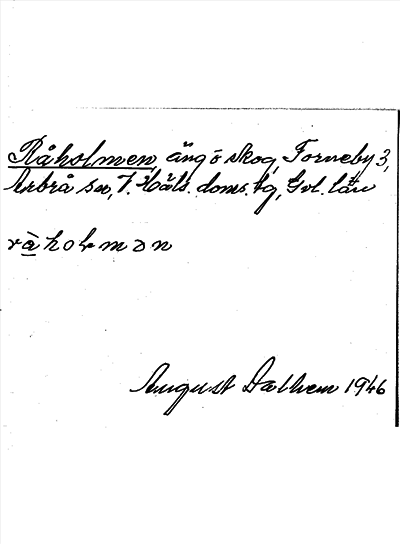 Råholmen, äng ö skog, Forneby 3,
Arbrå sn, V. Häls. doms. tg, Gvl. län
rå̀holmən
August Dalhem 1946